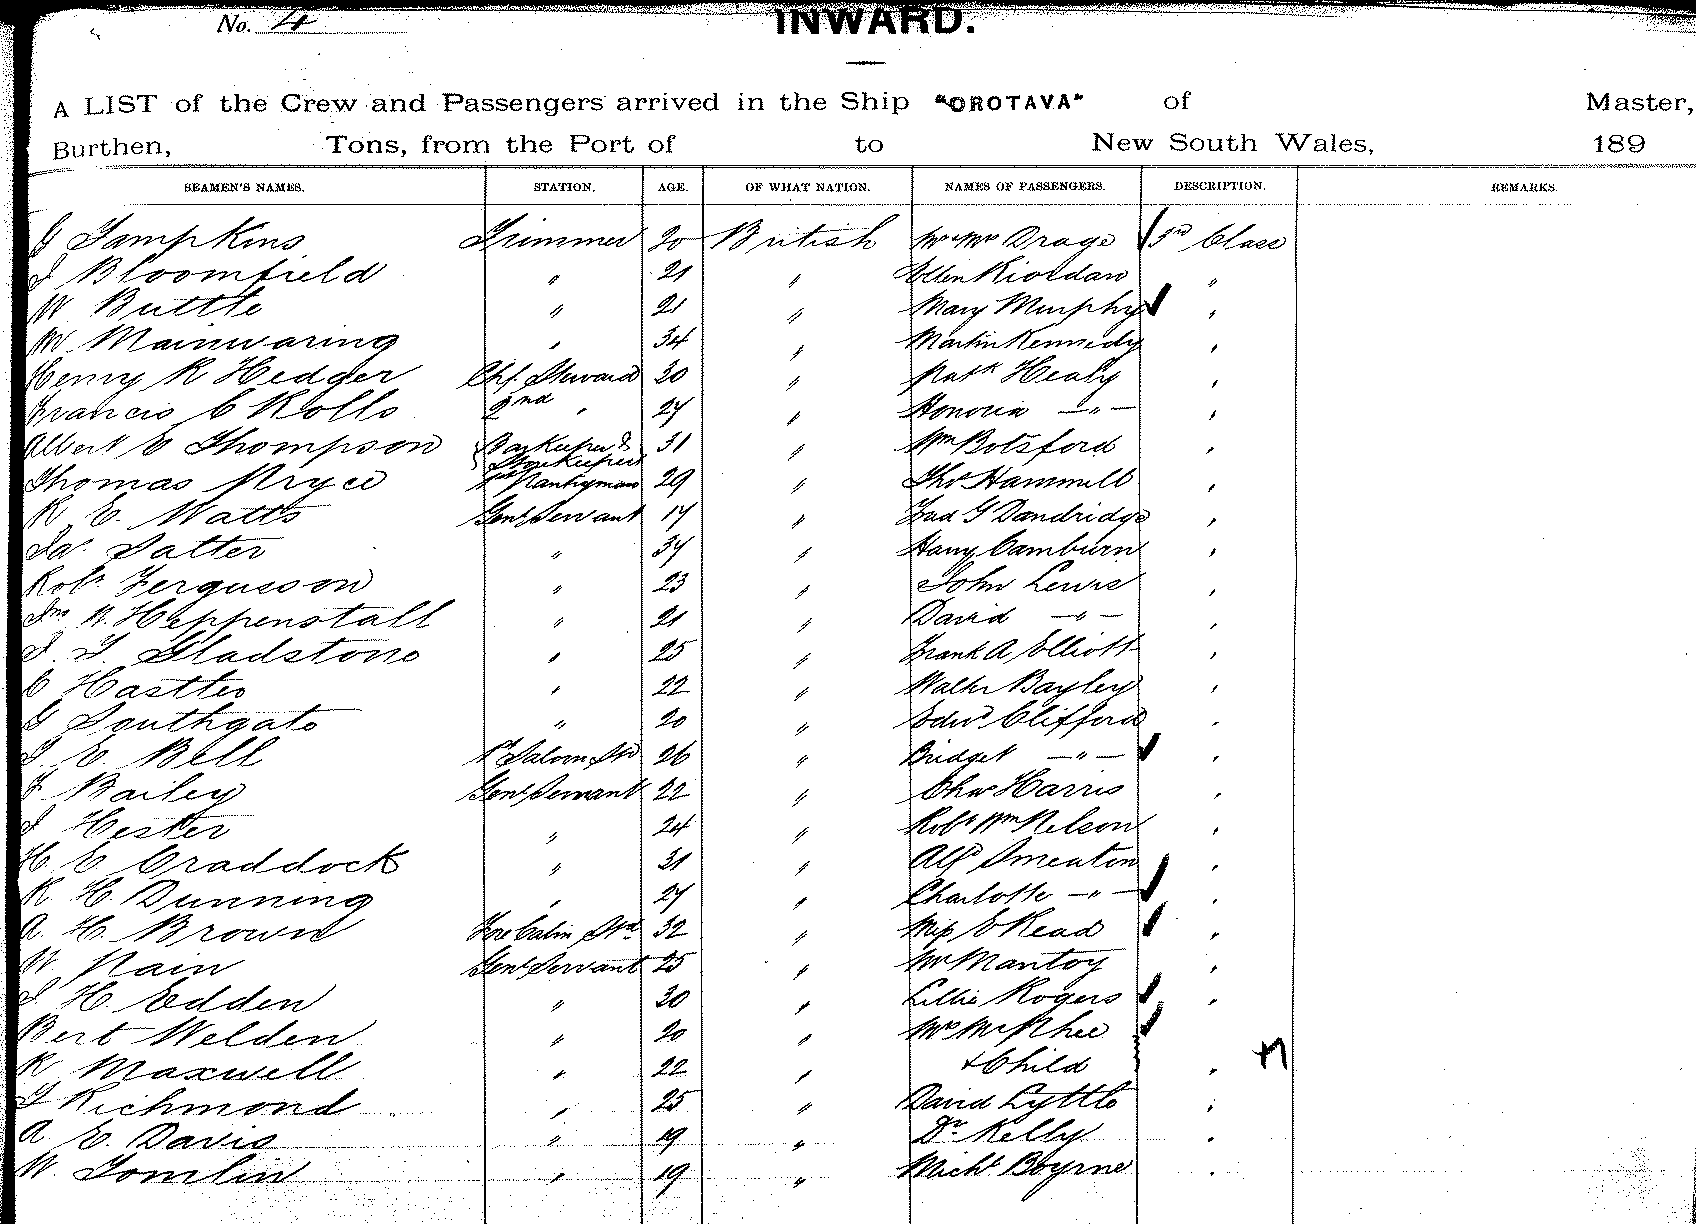 No. 4
INWARD.
A LIST of the Crew and Passengers arrived in the Ship "OROTAVA" of Master,
Burthen, Tons, from the Port of to New South Wales, 189
SEAMEN'S NAMES. STATION. AGE. OF WHAT NATION. NAMES OF PASSENGERS. DESCRIPTION. REMARKS.
G Tampkins Trimmer 20 British Mr & Mrs Drage 3rd Class
J Bloomfield " 21 " Ellen Riordan "
W Buttle " 21 " Mary Murphy "
W. Mainwaring " 34 " Martin Kennedy "
Henry R Hedger Chf. Steward 30 " Patk Healy "
Francis C Rolls 2nd " 27 " Honoria — " — "
Albert E Thompson Barkeeper & Storekeeper 31 " Wm Botsford "
Thomas Pryce 1st Pantryman 29 " Thos Hammill "
R. E. Watts Genl Servant 17 " Fred G Dandridge "
Jas. Salter " 37 " Harry Camburn "
Robt. Fergusson " 23 " John Lewis "
Jno W. Heppenstall " 21 " David — " — "
J. T. Gladstone " 25 " Frank A Elliott "
C Hastler " 22 " Walter Bayley "
G Southgate " 20 " Edwd. Clifford "
J. E. Bell 1st Saloon Std 26 " Bridget — " — "
F Bailey Genl Servant 22 " Chas Harris "
J Hester " 24 " Robt Wm Nelson "
H. E Craddock " 31 " Alfd Smeaton "
R. H. Dunning " 27 " Charlotte — " — "
A. H. Brown Fore Cabin Std 32 " Miss E Read "
W. Pain Genl Servant 25 " Mr Mantoy "
J H. Edden " 30 " Lillie Rogers "
Bert Welden " 20 " Mrs McPhee
R Maxwell " 22 " & Child "
J Richmond " 25 " David Lyttle "
A E. Davis " 19 " Dr. Kelly "
W. Tomlin " 19 " Michl Boyrne "